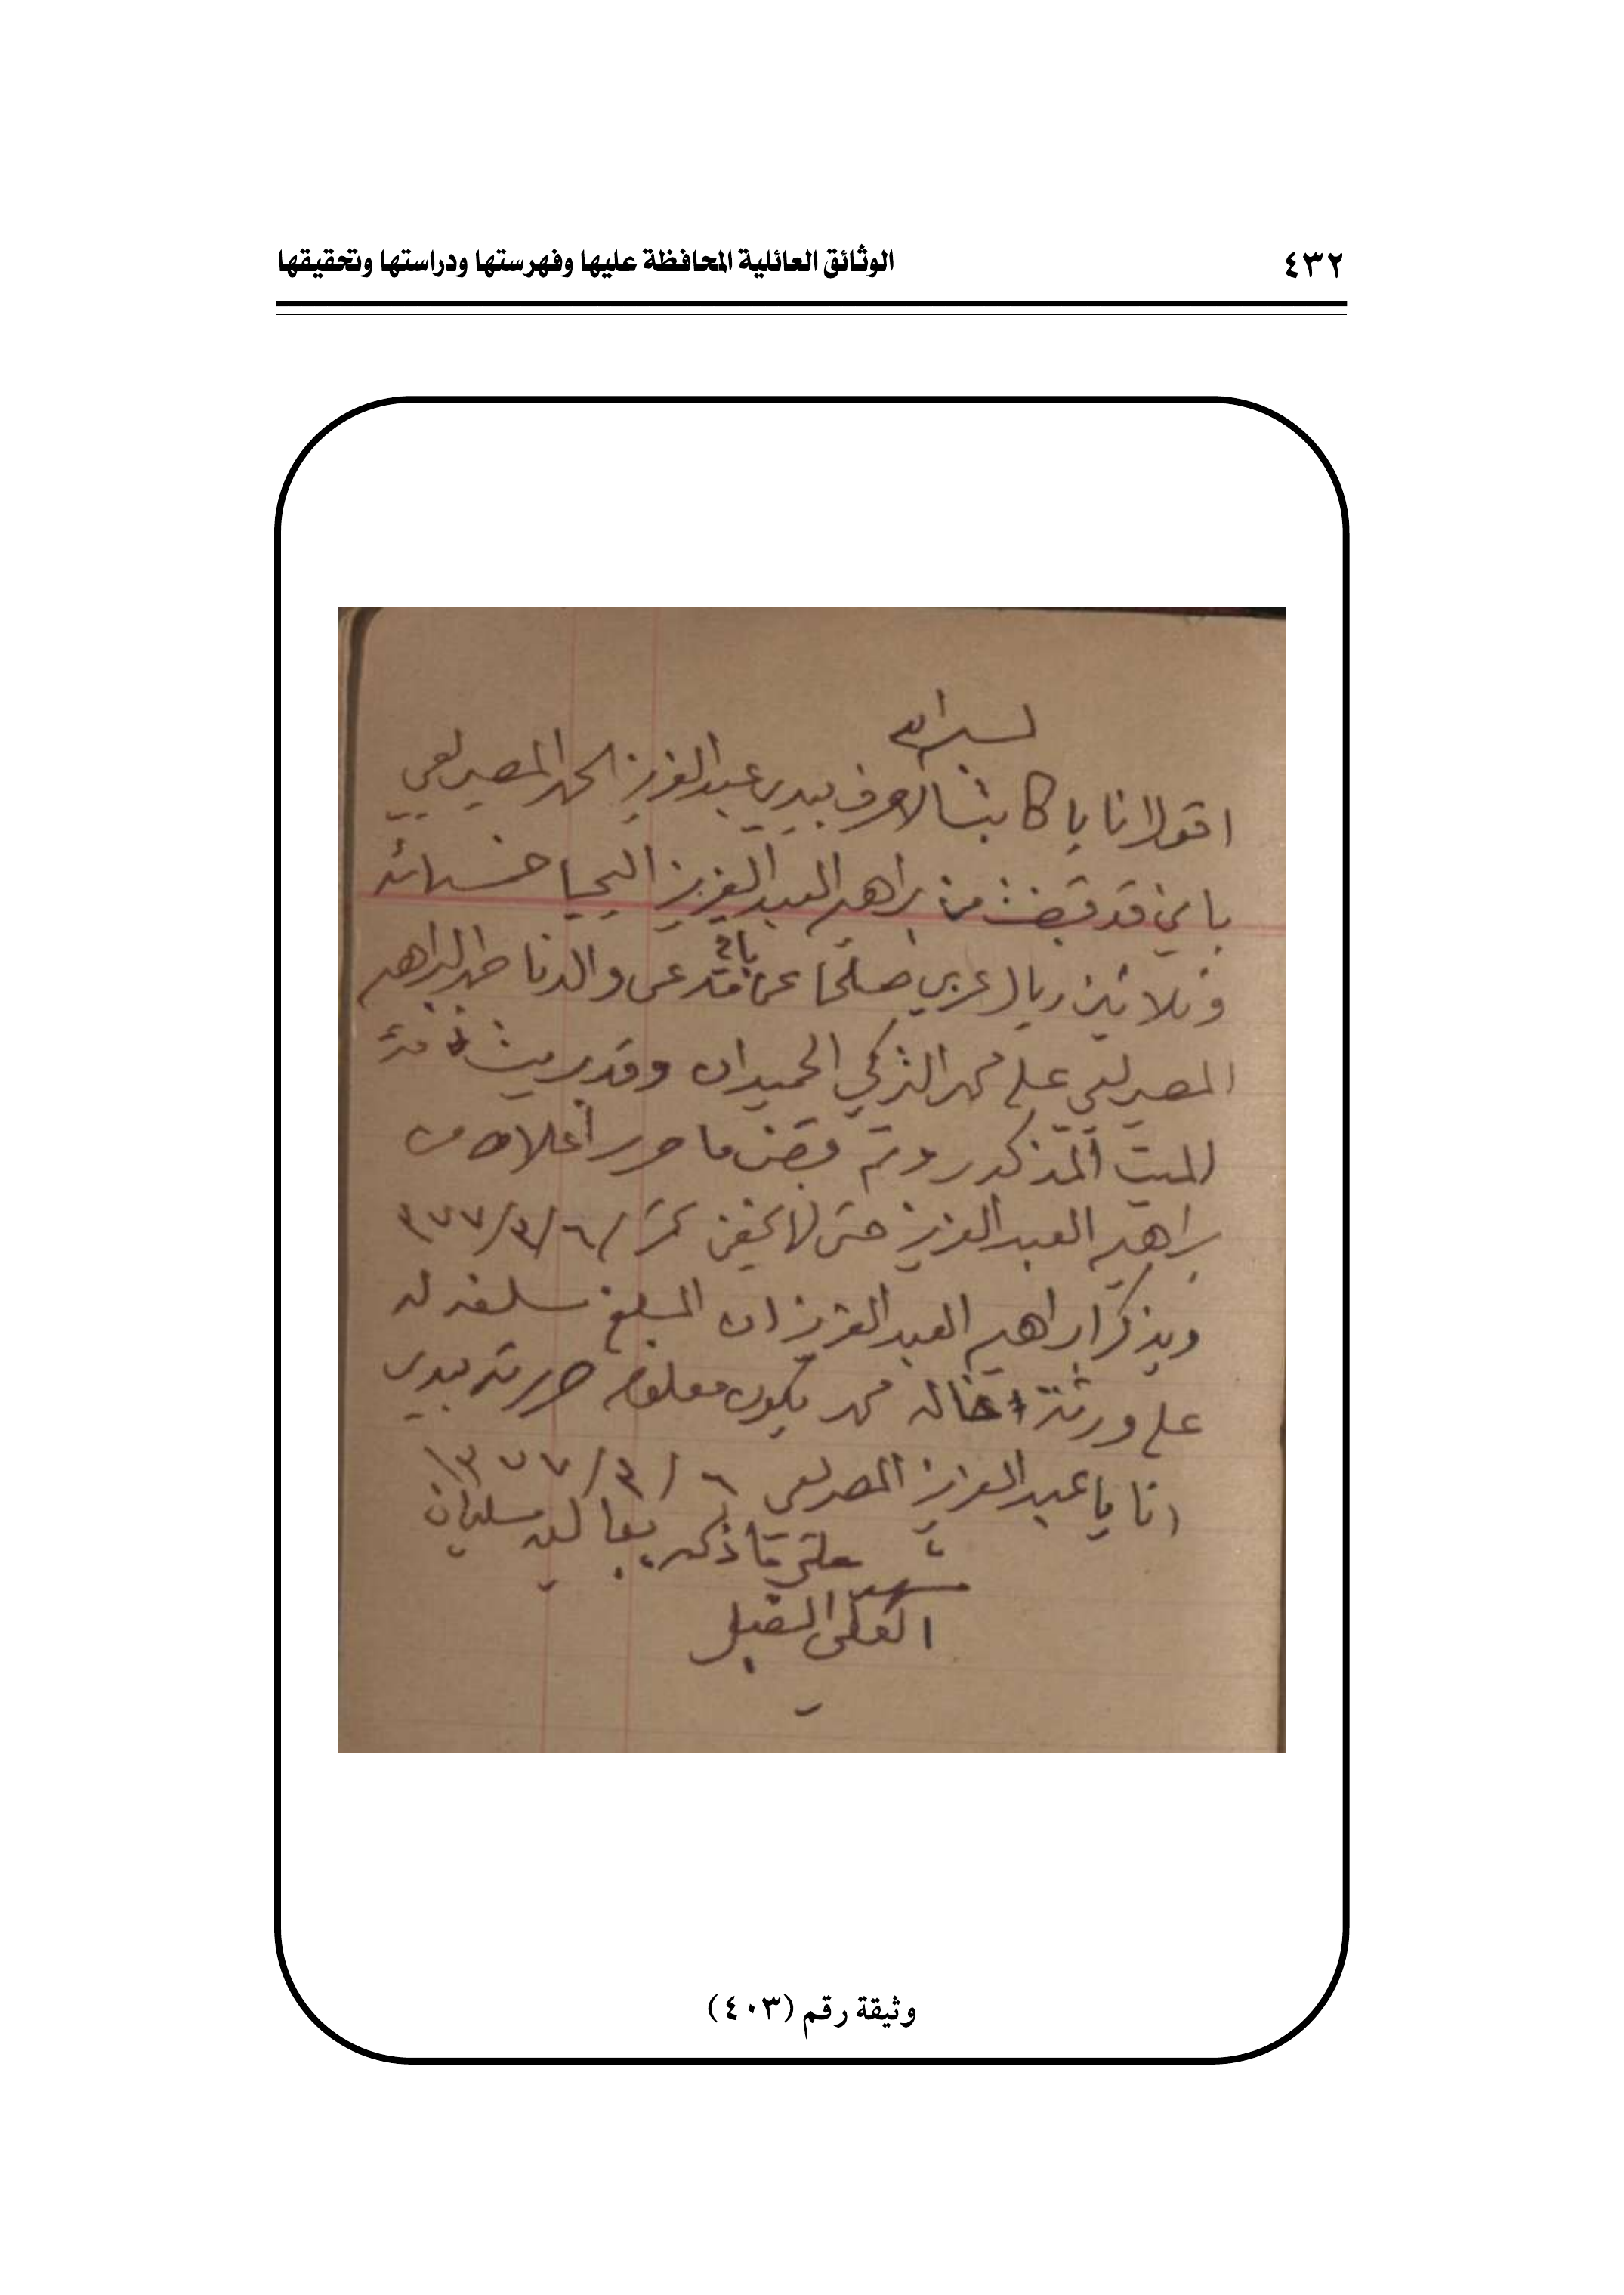 ٤٣٢
الوثائق العائلية المحافظة عليها وفهرستها ودراستها وتحقيقها
بسم الله
اقول انا يا كاتب الاحرف بيدي عبدالعزيز الحمد المصيريعي
باني قد قبضت من براهيم العبدالعزيز اليحيا خمسمائه
وثلاثين ريال عربي صلحا عن باقي عن والدنا حمد البراهيم
المصيريعي على محمد التركي الحميدان وقد بريت ذمة
الميت المذكور وتم قبض ما حرر أعلاه من
براهيم العبدالعزيز حتى لا يخفى ٦/٣/٣٧٧
ويذكر ابراهيم العبدالعزيز ان المبلغ سلفه له
على ورثة خاله محمد يكون معلوم حررته بيدي
انا يا عبدالعزيز المصريعي ٦/٣/١٣٧٧
شهد على ما ذكر بعاليه سليمان
العلي المقبل
وثيقة رقم (٤٠٣)